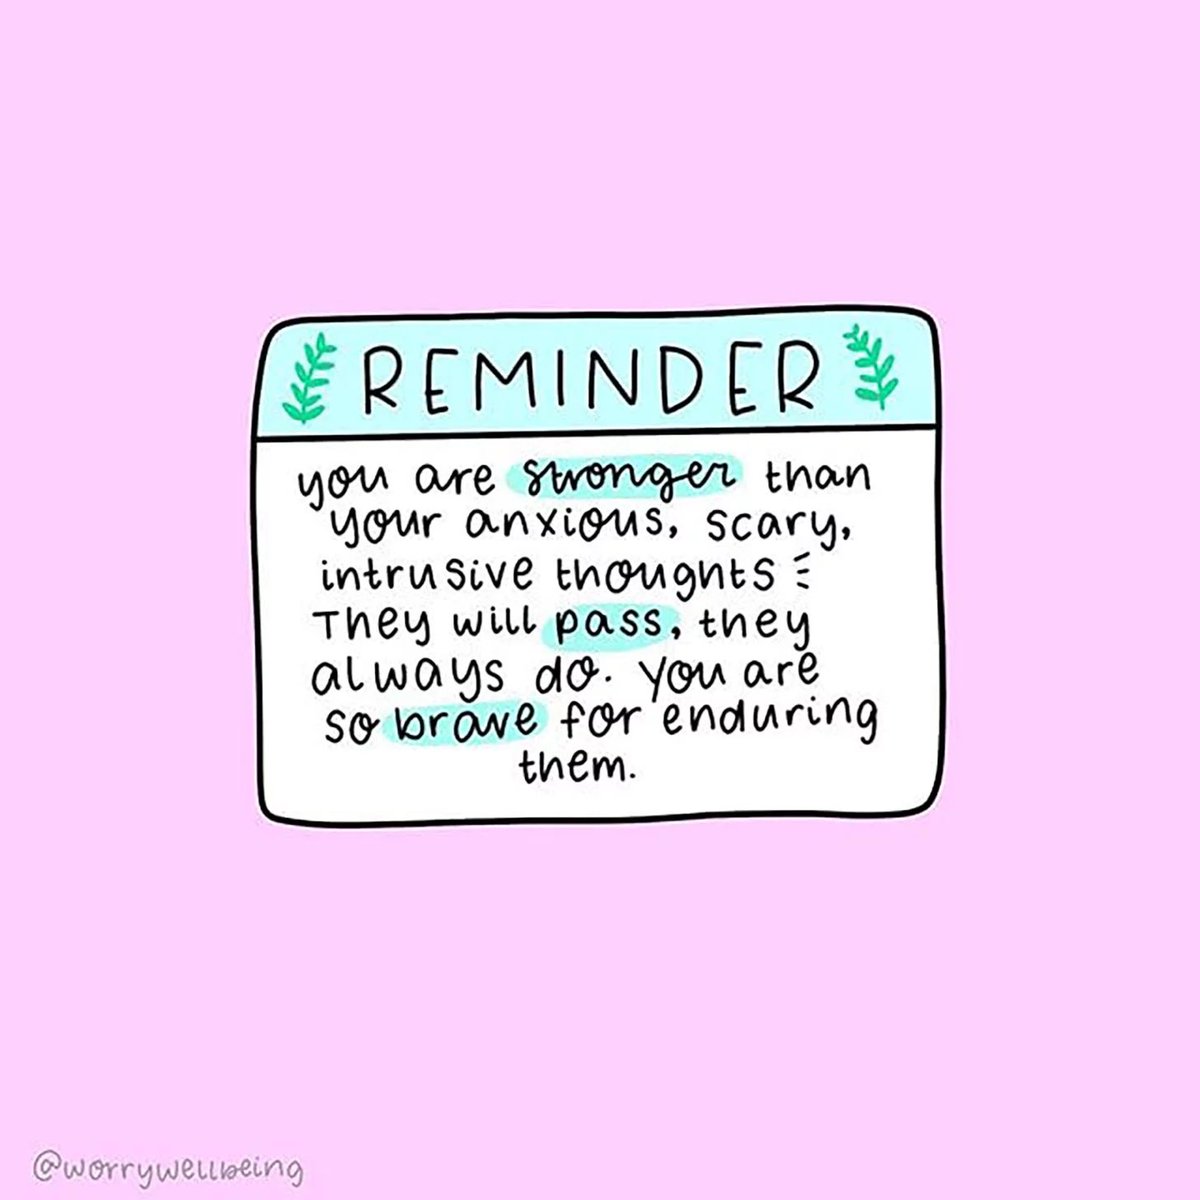 REMINDER
you are stronger than
your anxious, scary,
intrusive thoughts
They will pass, they
always do. You are
so brave for enduring
them.
@worrywellbeing